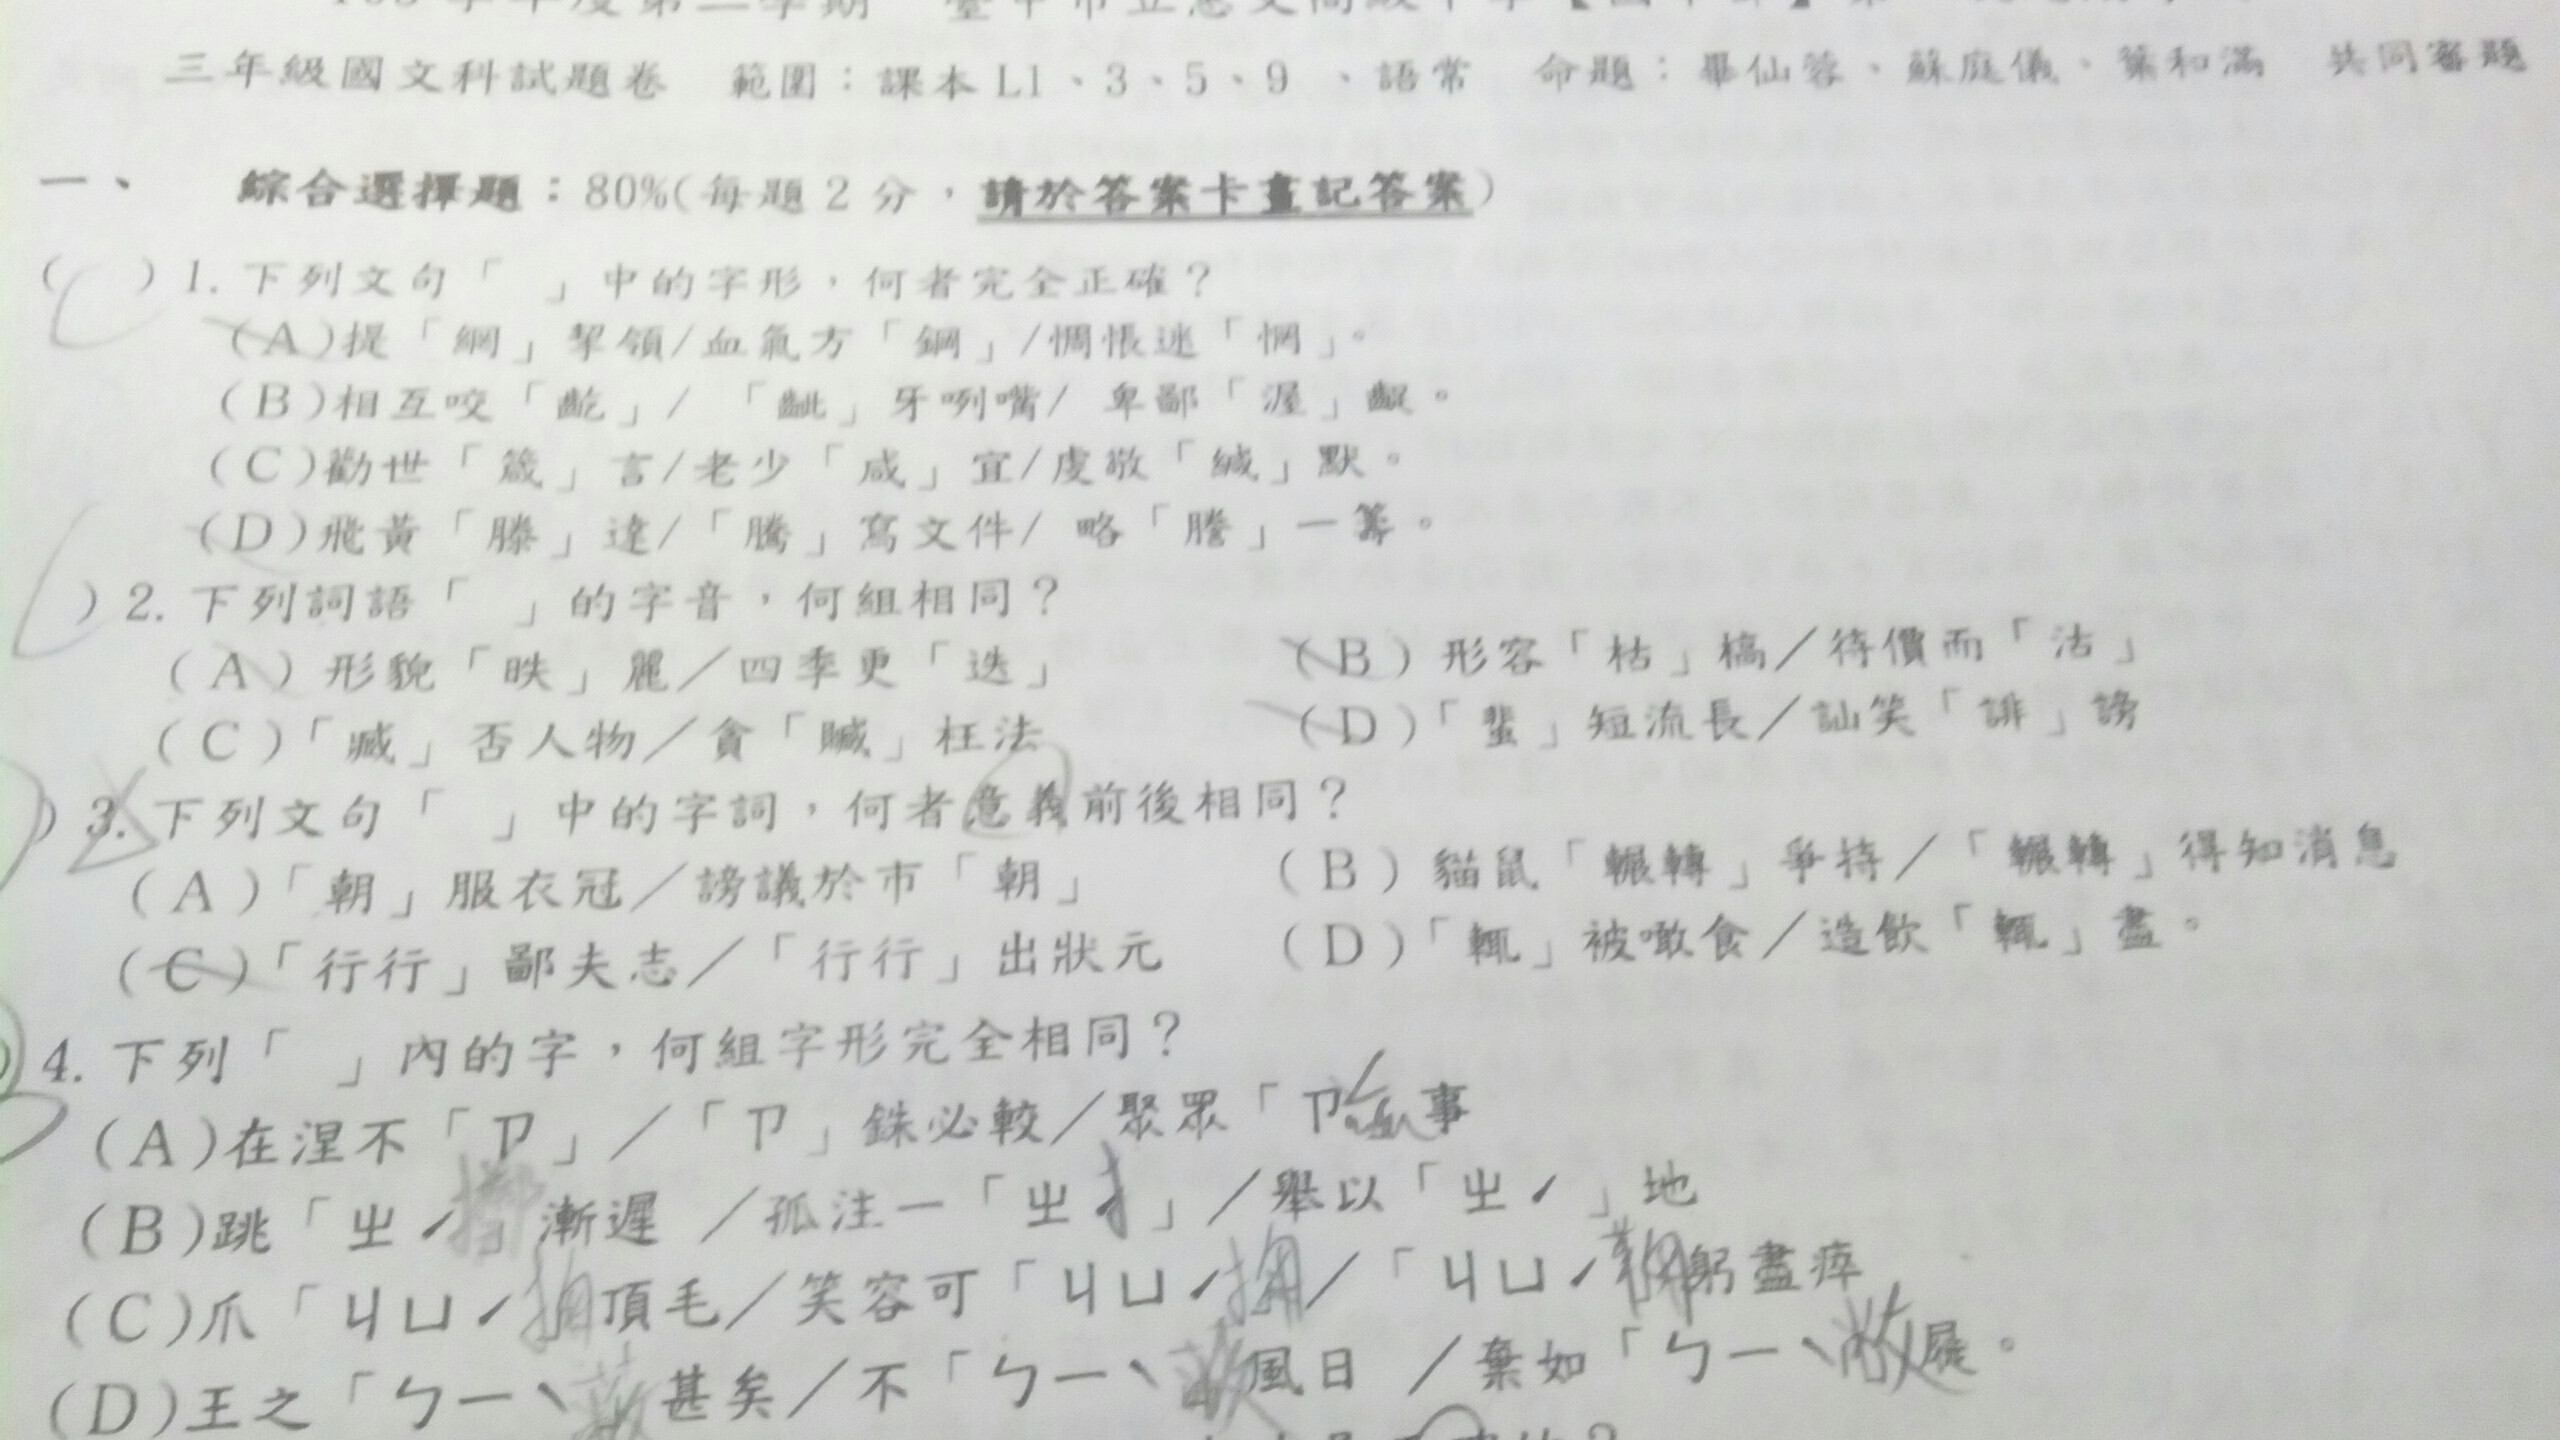 三年級國文科試題卷 範圍：課本L1、3、5、9 、語常 命題：畢仙蓉、蘇庭儀、葉和滿 共同審題
一、 綜合選擇題：80%(每題2分，請於答案卡畫記答案)
( )1.下列文句「 」中的字形，何者完全正確？
(A)提「網」挈領/血氣方「鋼」/惆悵迷「惘」。
(B)相互咬「齕」/ 「齜」牙咧嘴/ 卑鄙「渥」齪。
(C)勸世「箴」言/老少「咸」宜/虔敬「緘」默。
(D)飛黃「滕」達/「騰」寫文件/ 略「謄」一籌。
)2.下列詞語「 」的字音，何組相同？
(A) 形貌「昳」麗／四季更「迭」 (B) 形容「枯」槁／待價而「沽」
(C)「臧」否人物／貪「贓」枉法 (D)「蜚」短流長／訕笑「誹」謗
)3.下列文句「 」中的字詞，何者意義前後相同？
(A)「朝」服衣冠／謗議於市「朝」 (B) 貓鼠「輾轉」爭持／「輾轉」得知消息
(C)「行行」鄙夫志／「行行」出狀元 (D)「輒」被噉食／造飲「輒」盡。
)4.下列「 」內的字，何組字形完全相同？
(A)在涅不「ㄗ」／「ㄗ」銖必較／聚眾「ㄗ 事
(B)跳「ㄓˊ」漸遲 ／孤注一「ㄓˊ」／舉以「ㄓˊ」地
(C)爪「ㄐㄩˊ 頂毛／笑容可「ㄐㄩˊ ／「ㄐㄩˊ 躬盡瘁
(D)王之「ㄅㄧˋ」甚矣／不「ㄅㄧˋ 風日 ／棄如「ㄅㄧˋ敝屣。